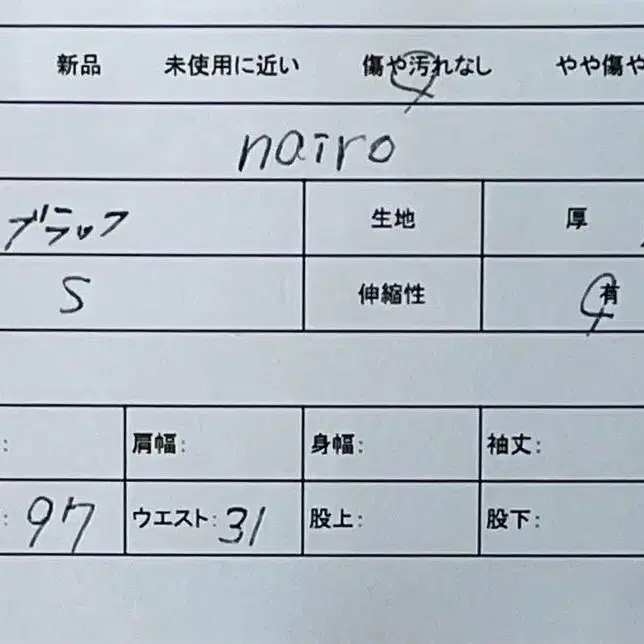 新品 未使用に近い 傷や汚れなし やや傷や
nairo
ブラック 生地 厚
S 伸縮性 有
: 肩幅: 身幅: 袖丈:
: 97 ウエスト: 31 股上: 股下: